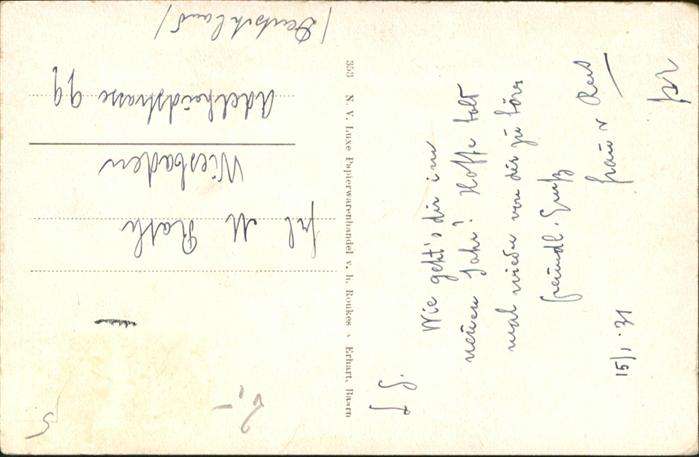 Wie geht's dir im
neuen Jahr? Hoffe bald
mal wieder von dir zu hören
freundl. Gruß
Frau v
15/1.31
Frl M
Wiesbaden
Adelheidstrasse 99
/Deutschland/
353 N. V. Luxe Papierwarenhandel v. h. Roukes & Erhart, Baarn
2,-